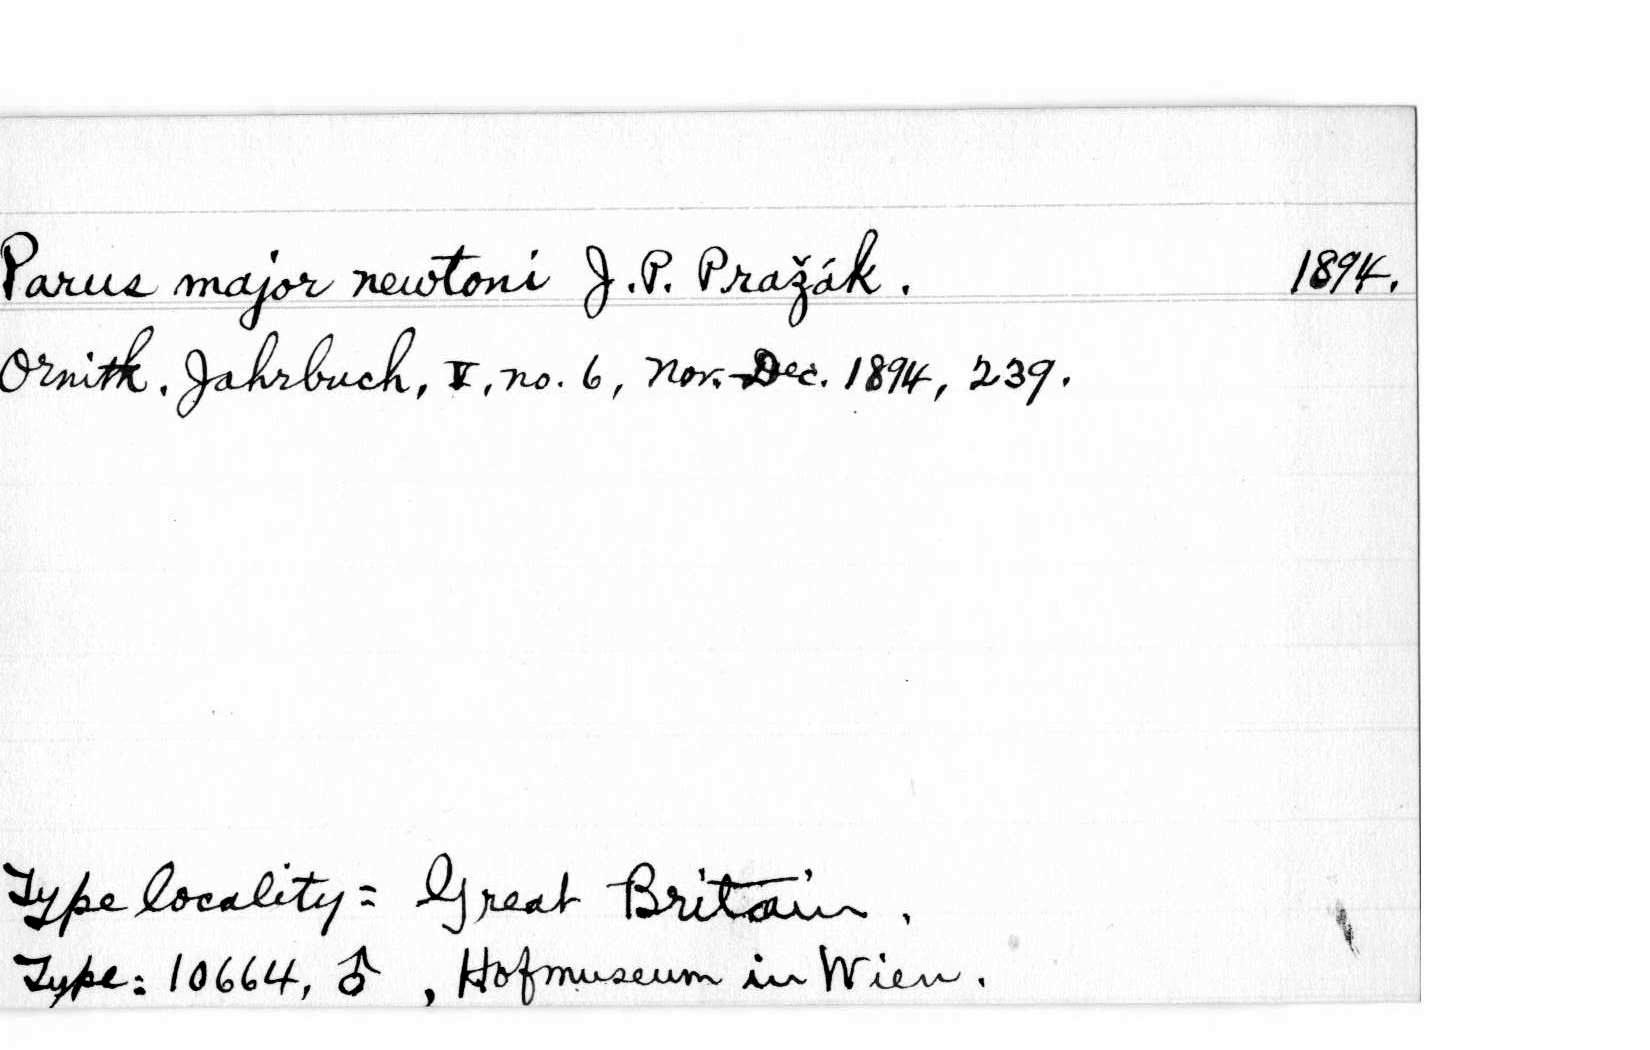 Parus major newtoni J. P. Pražák. 1894.
Ornith. Jahrbuch, V, no. 6, Nov.-Dec. 1894, 239.
Type locality = Great Britain.
Type: 10664, ♂, Hofmuseum in Wien.